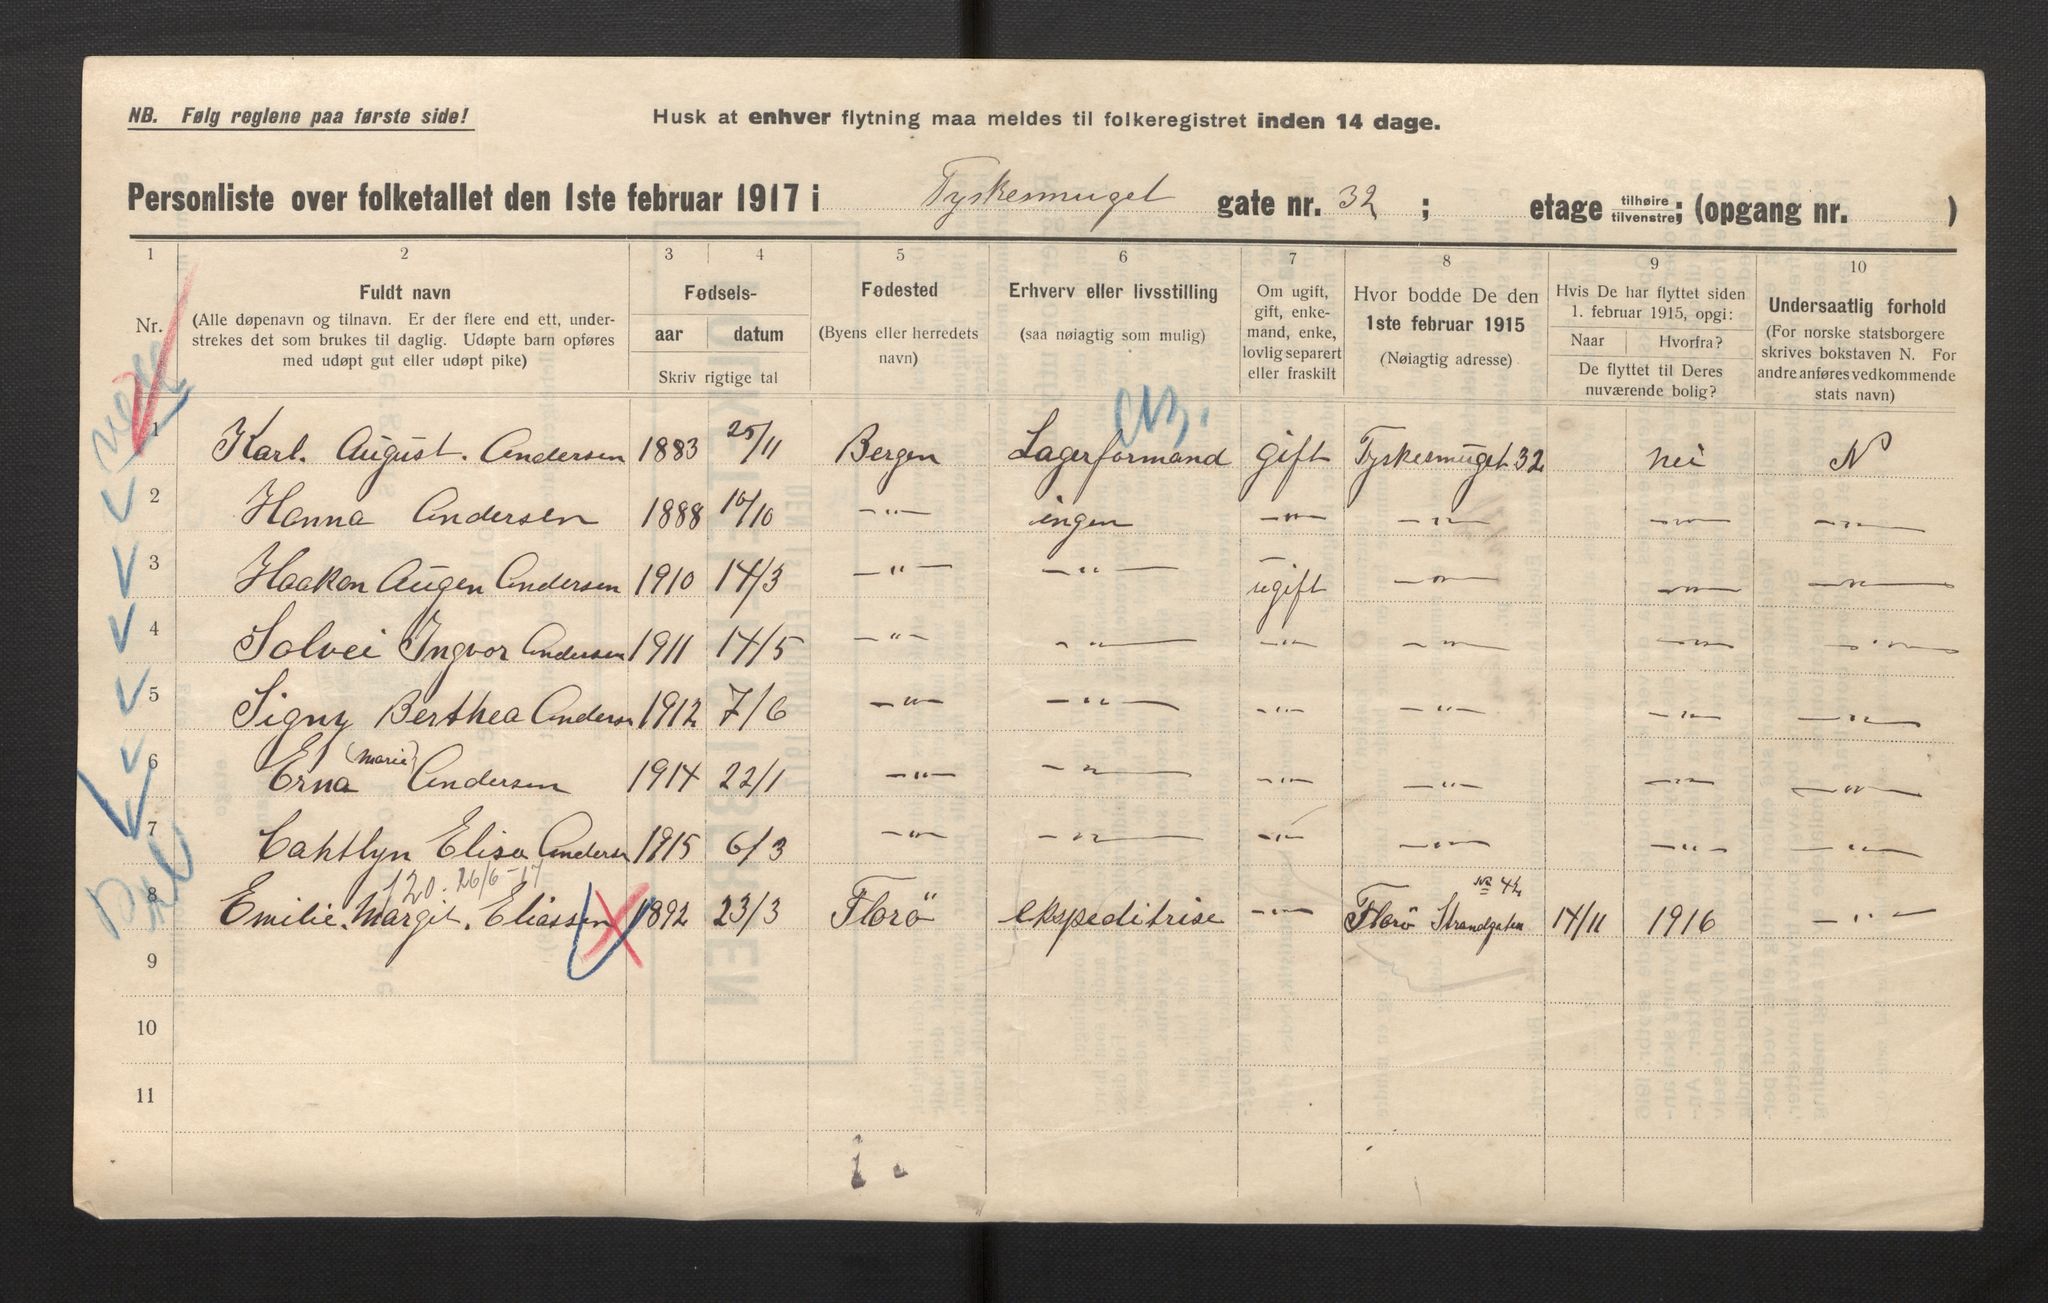 NB. Følg reglene paa første side!
Husk at enhver flytning maa meldes til folkeregistret inden 14 dage.
Personliste over folketallet den 1ste februar 1917 i Tyskesmuget gate nr. 32 ; etage tilhøire tilvenstre; (opgang nr. )
1 2 3 4 5 6 7 8 9 10
Nr.
Fuldt navn
(Alle døpenavn og tilnavn. Er der flere end ett, under-
strekes det som brukes til daglig. Udøpte barn opføres
med udøpt gut eller udøpt pike)
Fødsels-
aar datum
Skriv rigtige tal
Fødested
(Byens eller herredets
navn)
Erhverv eller livsstilling
(saa nøiagtig som mulig)
Om ugift,
gift, enke-
mand, enke,
lovlig separert
eller fraskilt
Hvor bodde De den
1ste februar 1915
(Nøiagtig adresse)
Hvis De har flyttet siden
1. februar 1915, opgi:
Naar Hvorfra?
De flyttet til Deres
nuværende bolig?
Undersaatlig forhold
(For norske statsborgere
skrives bokstaven N. For
andre anføres vedkommende
stats navn)
1 Karl. August. Andersen 1883 25/11 Bergen Lagerformand gift Tyskesmuget 32 nei N
2 Hanna Andersen 1888 10/10 —"— ingen —"— —"— —"— —"—
3 Haakon Augen Andersen 1910 14/3 —"— —"— ugift —"— —"— —"—
4 Solvei Ingvor Andersen 1911 14/5 —"— —"— —"— —"— —"— —"—
5 Signy Berthea Andersn 1912 7/6 —"— —"— —"— —"— —"— —"—
6 Erna (Marie) Andersen 1914 22/1 —"— —"— —"— —"— —"— —"—
7 Cahtlyn Elisa Anders 1915 6/3 —"— —"— —"— —"— —"— —"—
120. 26/6-17
8 Emilie. Margit. Eliassen 1892 23/3 Florö ekspeditrise —"— Florö Strandgaten No 42 14/11 1916 —"—
9
10
11